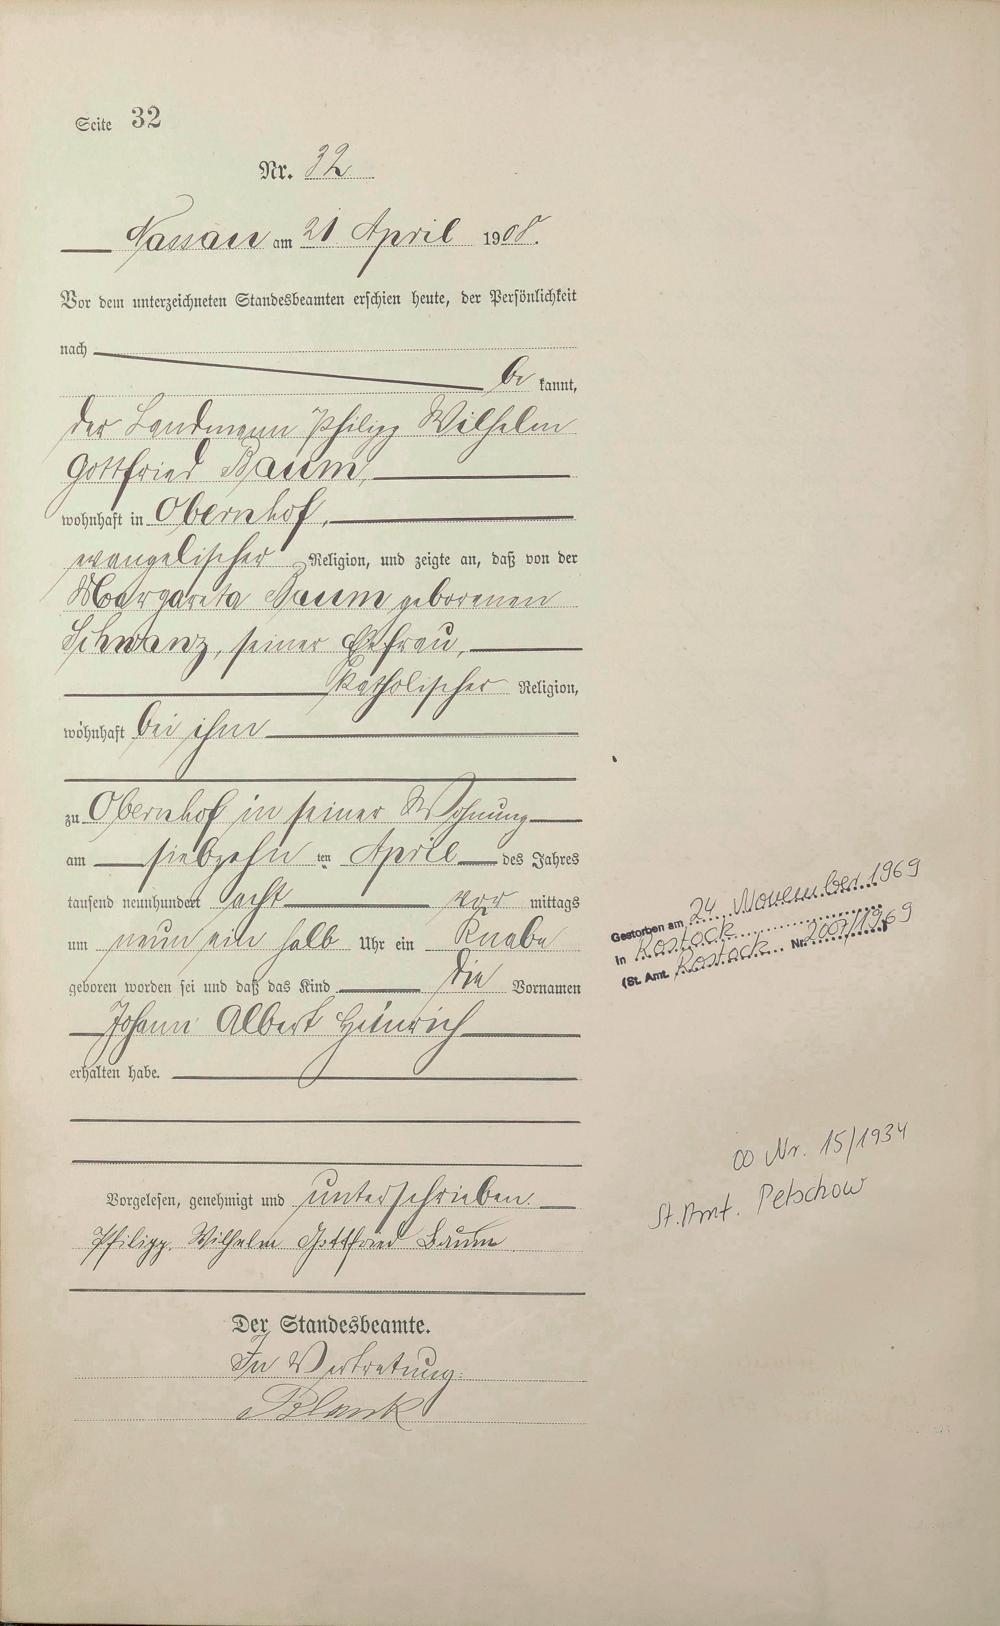 Seite 32
Nr. 32
Nassau am 21. April 1908.
Vor dem unterzeichneten Standesbeamten erschien heute, der Persönlichkeit
nach
be kannt,
der Landmann Philipp Wilhelm
Gottfried Baum,
wohnhaft in Obernhof,
evangelischer Religion, und zeigte an, daß von der
Margareta Baum geborenen
Schwanz, seiner Ehefrau,
katholischer Religion,
wohnhaft bei ihm
zu Obernhof in seiner Wohnung
am siebzehn ten April des Jahres
tausend neunhundert acht vor mittags
um neun ein halb Uhr ein Knabe
geboren worden sei und daß das Kind die Vornamen
Johann Albert Heinrich
erhalten habe.
Vorgelesen, genehmigt und unterschrieben.
Philipp Wilhelm Gottfried Baum
Der Standesbeamte.
In Vertretung:
Blank
Gestorben am 24. November 1969
in Rostock
(St. Amt. Rostock Nr. 2007/1969)
∞ Nr. 15/1934
St. Amt. Petschow